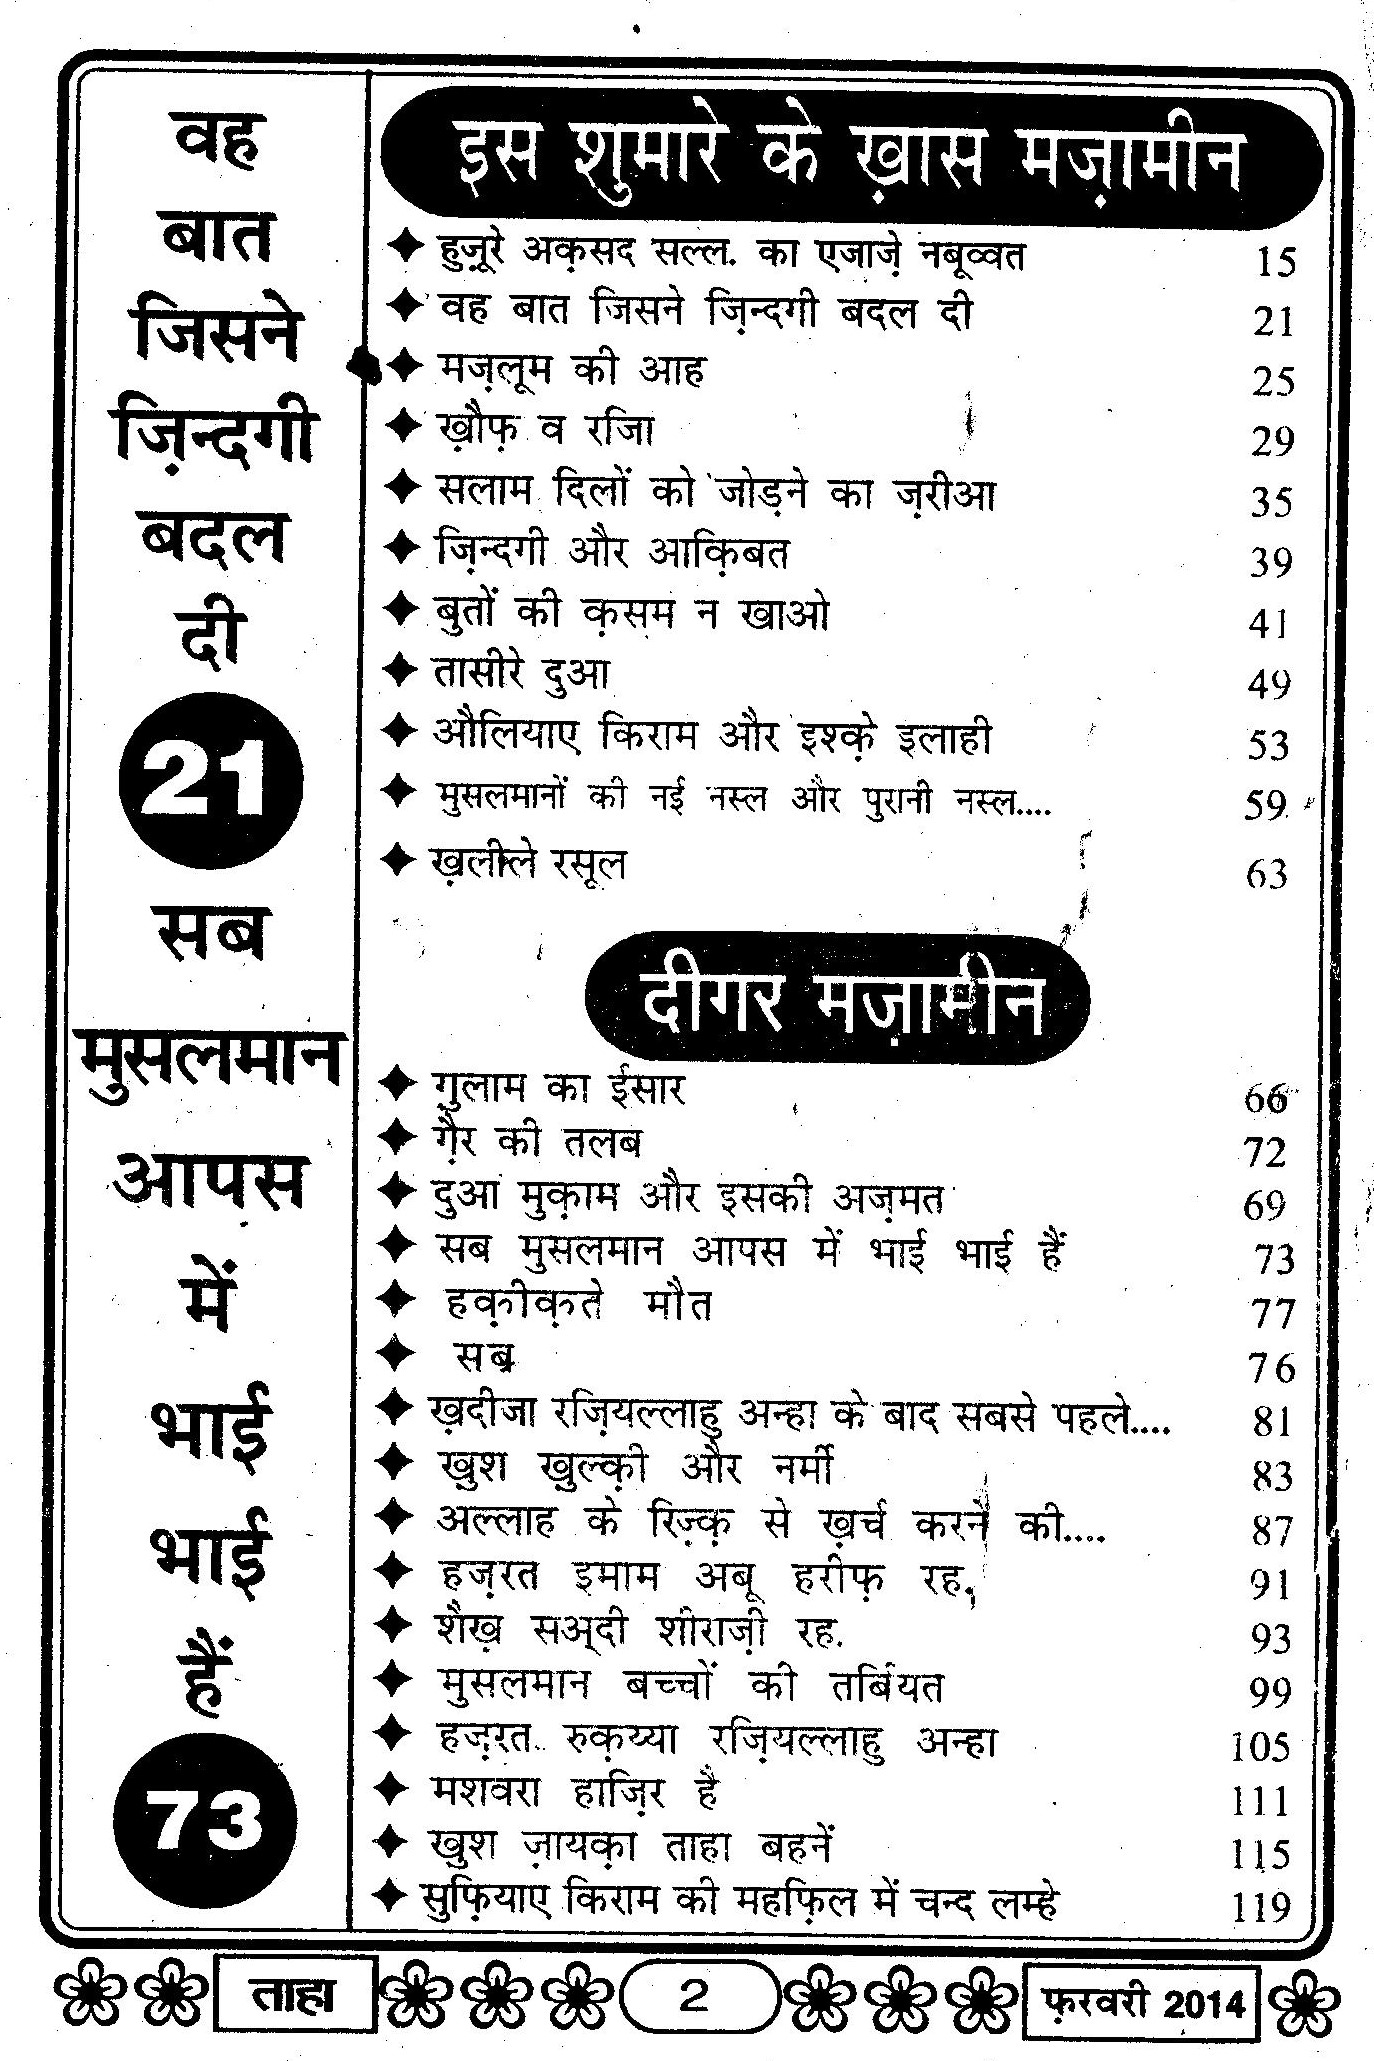 वह
बात
जिसने
ज़िन्दगी
बदल
दी
21
सब
मुसलमान
आपस
में
भाई
भाई
हैं
73
इस शुमारे के ख़ास मज़ामीन
हुज़ूरे अक़सद सल्ल. का एजाज़े नबूव्वत 15
वह बात जिसने ज़िन्दगी बदल दी 21
मज़लूम की आह 25
ख़ौफ़ व रजा 29
सलाम दिलों को जोड़ने का ज़रीआ 35
ज़िन्दगी और आक़िबत 39
बुतों की क़सम न खाओ 41
तासीरे दुआ 49
औलियाए किराम और इश्क़े इलाही 53
मुसलमानों की नई नस्ल और पुरानी नस्ल.... 59
ख़लीले रसूल 63
दीगर मज़ामीन
गुलाम का ईसार 66
ग़ैर की तलब 72
दुआ मुक़ाम और इसकी अज़मत 69
सब मुसलमान आपस में भाई भाई हैं 73
हक़ीक़ते मौत 77
सब्र 76
ख़दीजा रज़ियल्लाहु अन्हा के बाद सबसे पहले.... 81
खुश खुल्क़ी और नर्मी 83
अल्लाह के रिज़्क़ से ख़र्च करने की.... 87
हज़रत इमाम अबू हरीफ़ रह. 91
शैख़ सअ्दी शीराज़ी रह. 93
मुसलमान बच्चों की तर्बियत 99
हज़रत रुक़य्या रज़ियल्लाहु अन्हा 105
मशवरा हाज़िर है 111
खुश ज़ायक़ा ताहा बहनें 115
सुफ़ियाए किराम की महफ़िल में चन्द लम्हे 119
ताहा 2 फ़रवरी 2014